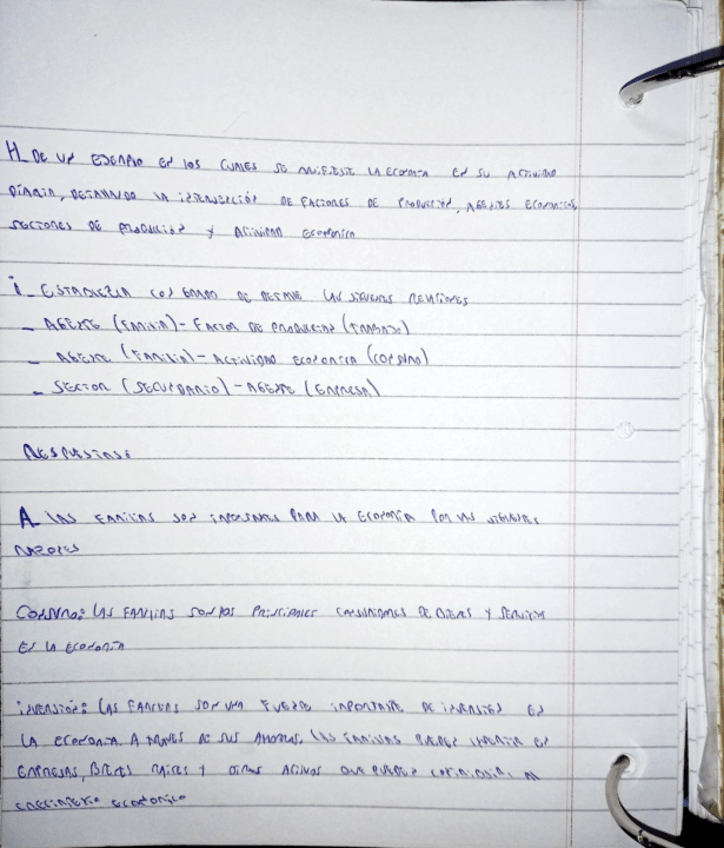 H_ DE UN EJEMPLO EN LOS CUALES SE MANIFIESTE LA ECONOMIA EN SU ACTIVIDAD
DIARIA, DETALLANDO LA INTERACCIÓN DE FACTORES DE PRODUCCIÓN, AGENTES ECONOMICOS,
SECTORES DE PRODUCCIÓN Y ACTIVIDAD ECONOMICA
i_ ESTABLEZCA CON GRADO DE DETALLE LAS SIGUIENTES RELACIONES
- AGENTE (FAMILIA) - FACTOR DE PRODUCCIÓN (TRABAJO)
- AGENTE (FAMILIA) - ACTIVIDAD ECONOMICA (CONSUMO)
- SECTOR (SECUNDARIO) - AGENTE (EMPRESA)
RESPUESTAS:
A_ LAS FAMILIAS SON IMPORTANTES PARA LA ECONOMÍA POR LAS SIGUIENTES
RAZONES
CONSUMO: LAS FAMILIAS SON LOS PRINCIPALES CONSUMIDORES DE BIENES Y SERVICIOS
EN LA ECONOMÍA
INVERSIÓN: LAS FAMILIAS SON UNA FUENTE IMPORTANTE DE INVERSIÓN EN
LA ECONOMIA. A TRAVES DE SUS AHORROS, LAS FAMILIAS PUEDEN INVERTIR EN
EMPRESAS, BIENES RAICES Y OTROS ACTIVOS QUE PUEDEN CONTRIBUIR AL
CRECIMIENTO ECONOMICO